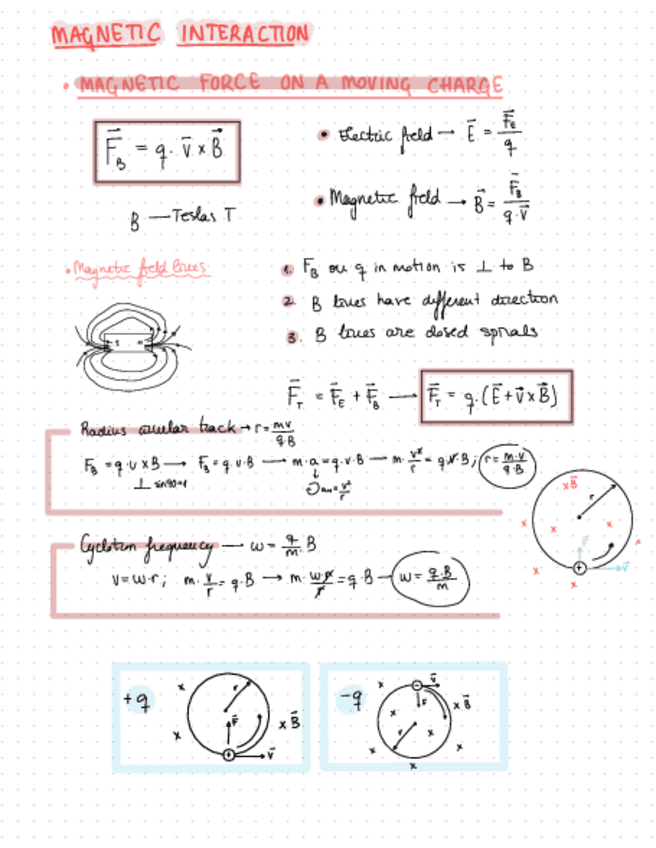 MAGNETIC INTERACTION
• MAGNETIC FORCE ON A MOVING CHARGE
F⃗_B = q · v⃗ × B⃗
• Electric field → E⃗ = F⃗_E / q
B — Teslas T
• Magnetic field → B⃗ = F⃗_B / q·v⃗
• Magnetic field lines:
1. F_B on q in motion is ⊥ to B
2. B lines have different direction
3. B lines are closed spirals
S N
F⃗_T = F⃗_E + F⃗_B → F⃗_T = q·(E⃗ + v⃗ × B⃗)
Radius circular track → r = mv / q·B
F_B = q·v × B → F_B = q·v·B → m·a = q·v·B → m·v²/r = q·v·B; r = m·v / q·B
⊥ sin90=1
a_n = v²/r
x B⃗
r
F⃗
+
v⃗
Cyclotron frequency → ω = q/m · B
v = ω·r; m·v/r = q·B → m·ωr/r = q·B → ω = q·B / m
+q
x
r
F⃗
x B⃗
x
+
v⃗
-q
x
−
v⃗
F
x B⃗
x
r
x
x
x
x